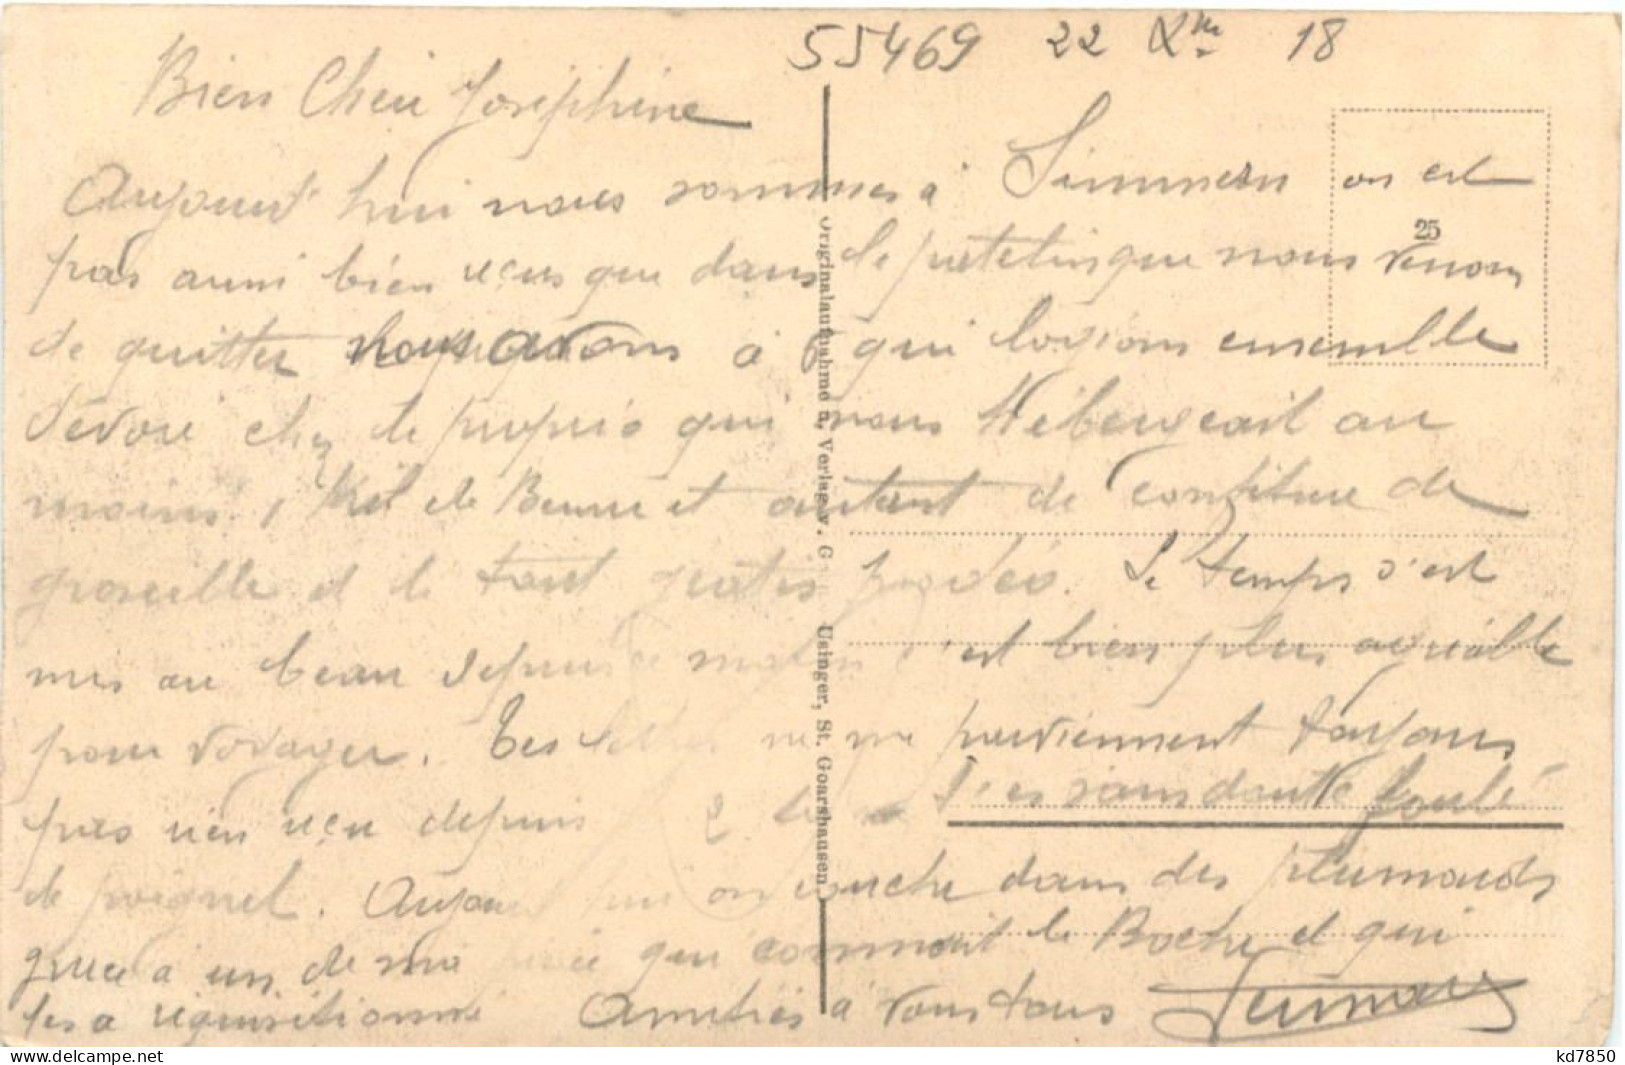 55469 22 Xbre 18
Bien Cher Joséphine
Aujourd'hui nous sommes à Simmern on est
pas aussi bien reçus que dans le patelin que nous venons
25
de quitter nous avons à 6 qui logions ensemble
dévoré chez le proprio qui nous hébergeait au
moins 1 Kil de Beurre et autant de confiture de
groseille et le tout gratis prodéo. Le temps s'est
mis au beau depuis ce matin c'est bien plus agréable
pour voyager. Tes lettres ne me parviennent toujours
pas rien reçu depuis 2 T'es sans doute foulé
le poignet. Aujourd'hui on couche dans des plumards
grâce à un de ma pièce qui connait le Boche et qui
les a réquisitionné Amitiés à vous tous
Originalaufnahme u. Verlag v. G. Usinger, St. Goarshausen
kd7850